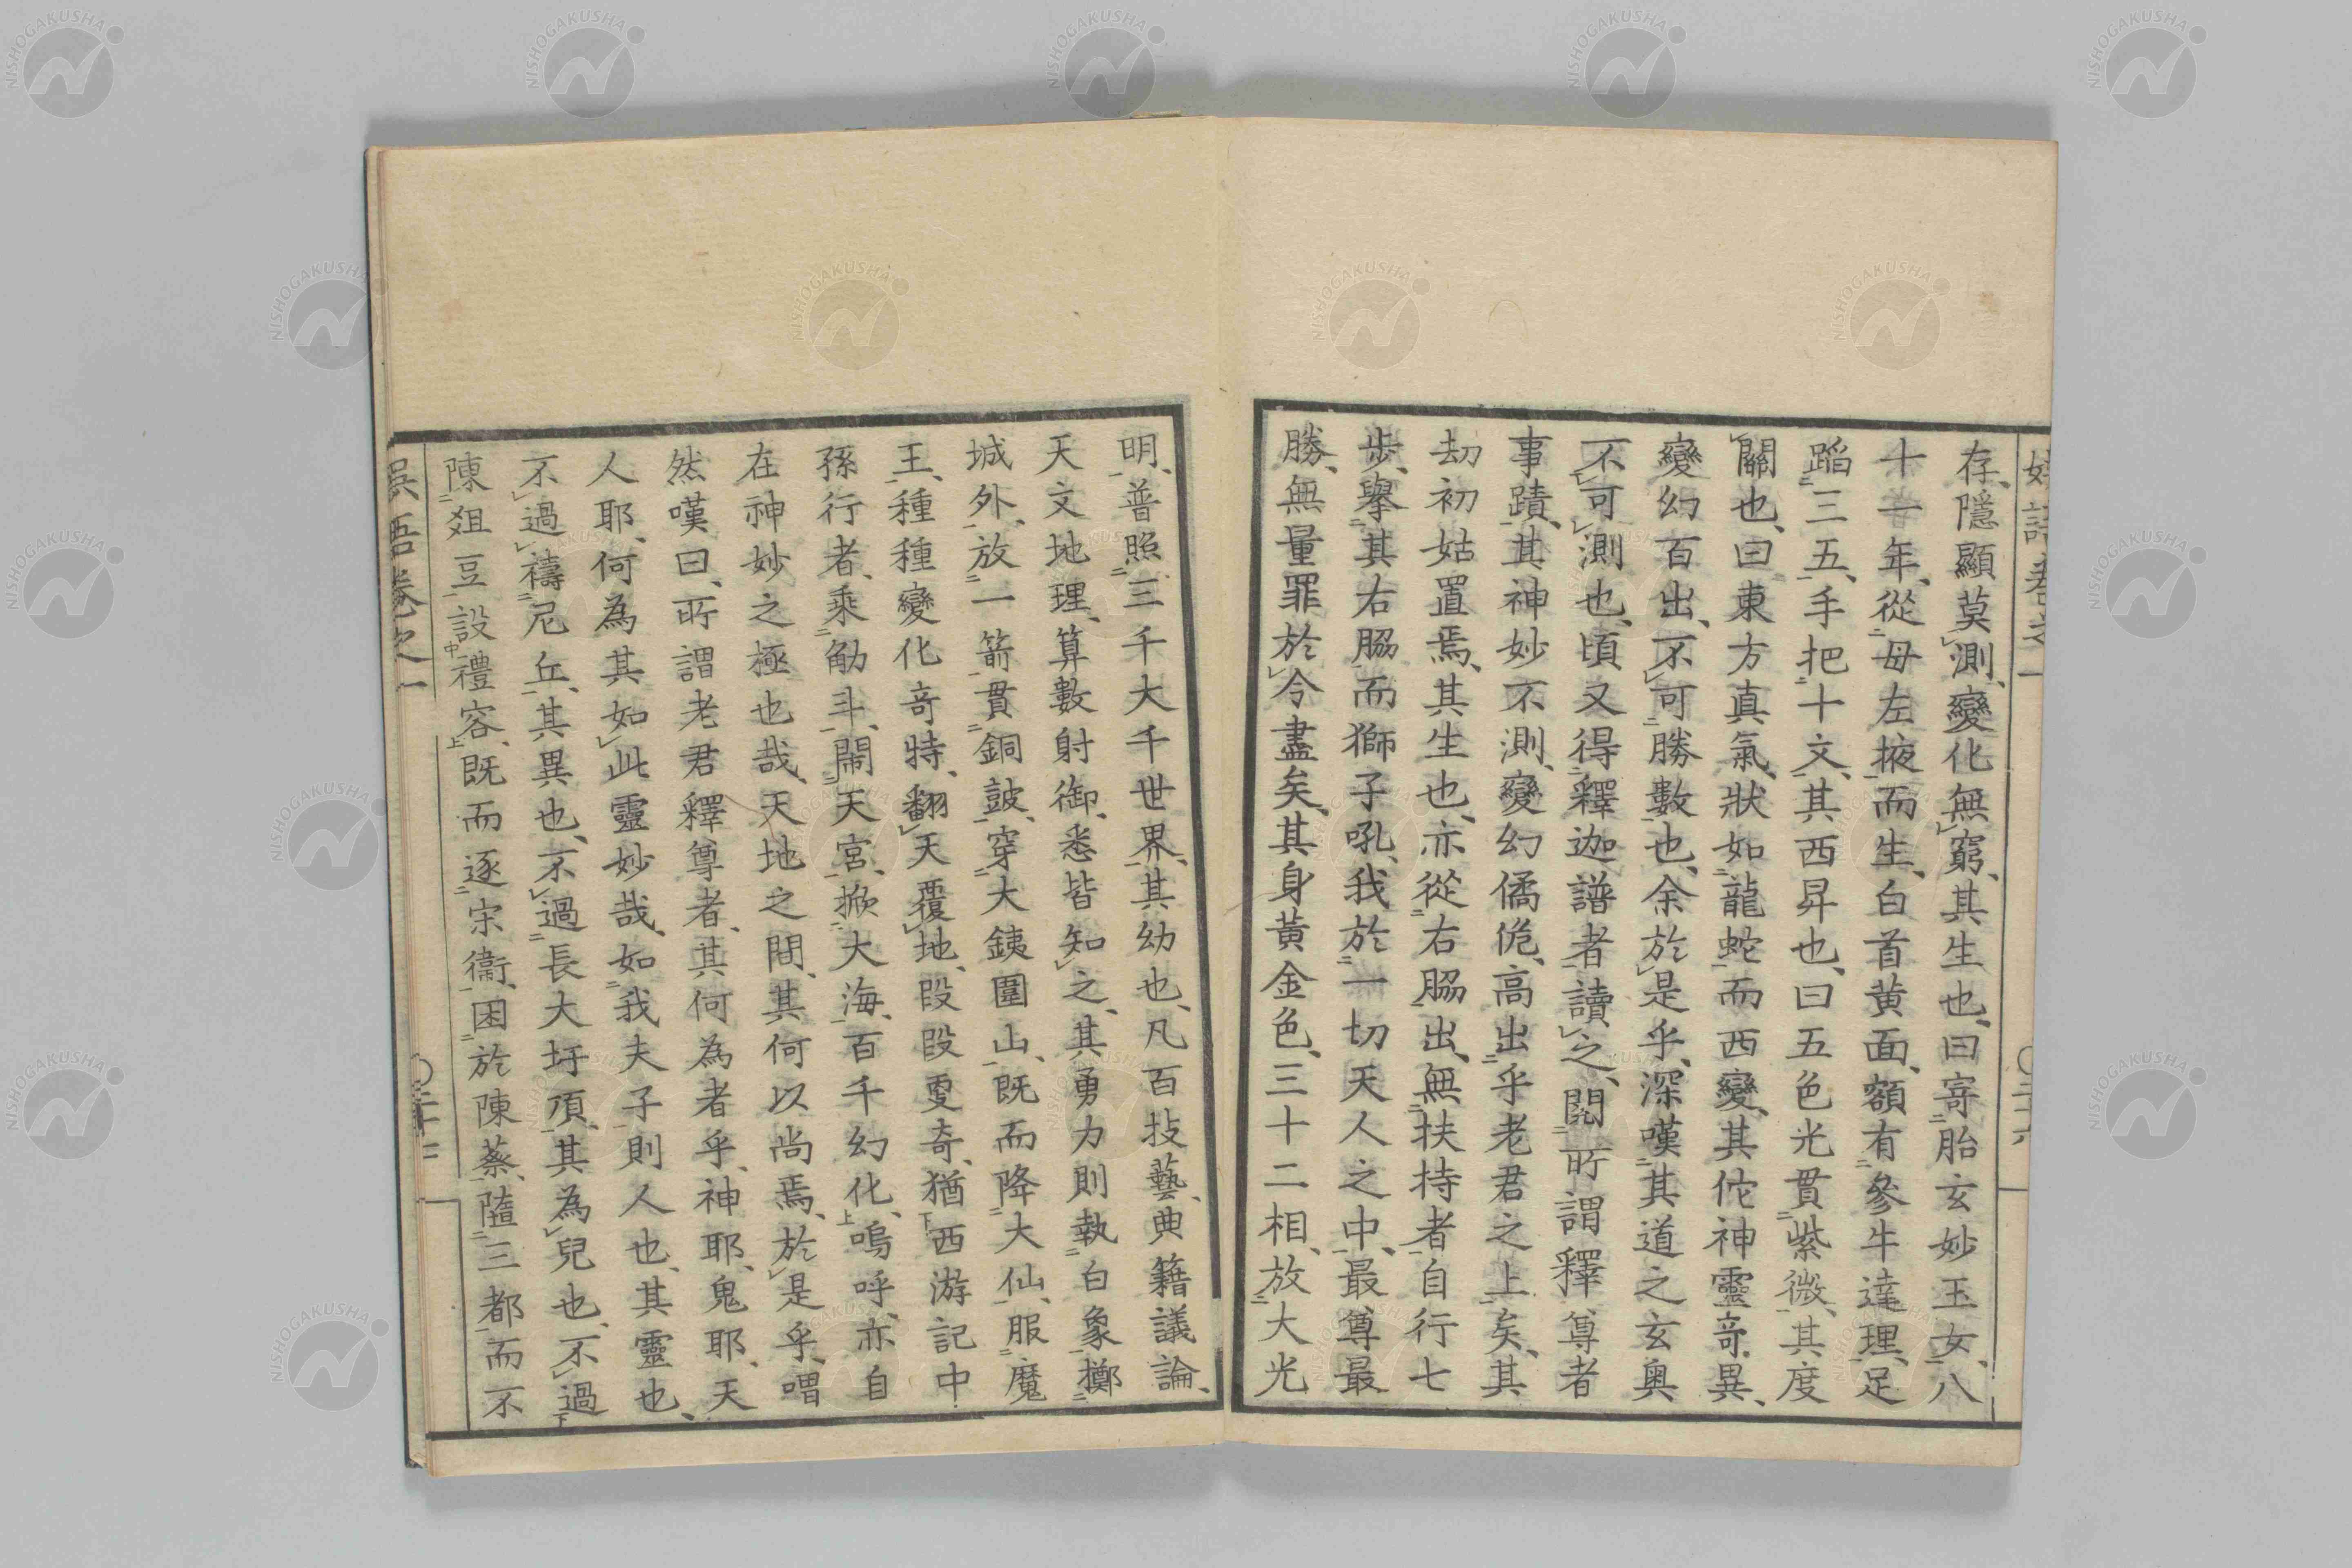 存、隱顯莫測、變化無窮、其生也、曰寄胎玄妙玉女、八
十一年、從母左掖而生、白首黄面、額有參牛達理、足
蹈三五、手把十文、其西昇也、曰五色光貫紫微、其度
關也、曰東方真氣、狀如龍蛇而西變、其佗神靈奇異、
變幻百出、不可勝數也、余於是乎、深嘆其道之玄奧
不可測也、頃又得釋迦譜者讀之、閲所謂釋尊者
事蹟、其神妙不測、變幻僑佹、高出乎老君之上矣、其
劫初姑置焉、其生也、亦從右脇出、無扶持者自行七
步、舉其右脇而獅子吼、我於一切天人之中、最尊最
勝、無量罪於今盡矣、其身黄金色、三十二相、放大光
明、普照三千大千世界、其幼也、凡百技藝、典籍議論、
天文地理、算數射御、悉皆知之、其勇力則執白象擲
城外、放一箭貫銅鼓、穿大銕圍山、既而降大仙、服魔
王、種種變化奇特、翻天覆地、段段更奇、猶西游記中
孫行者、乘觔斗、鬧天宮、掀大海、百千幻化、嗚呼、亦自
在神妙之極也哉、天地之間、其何以尚焉、於是乎、喟
然嘆曰、所謂老君釋尊者、其何為者乎、神耶、鬼耶、天
人耶、何為其如此靈妙哉、如我夫子則人也、其靈也、
不過禱尼丘、其異也、不過長大圩頂、其為兒也、不過
陳爼豆設禮容、既而逐宋衞、困於陳蔡、隳三都而不
吳語卷之一